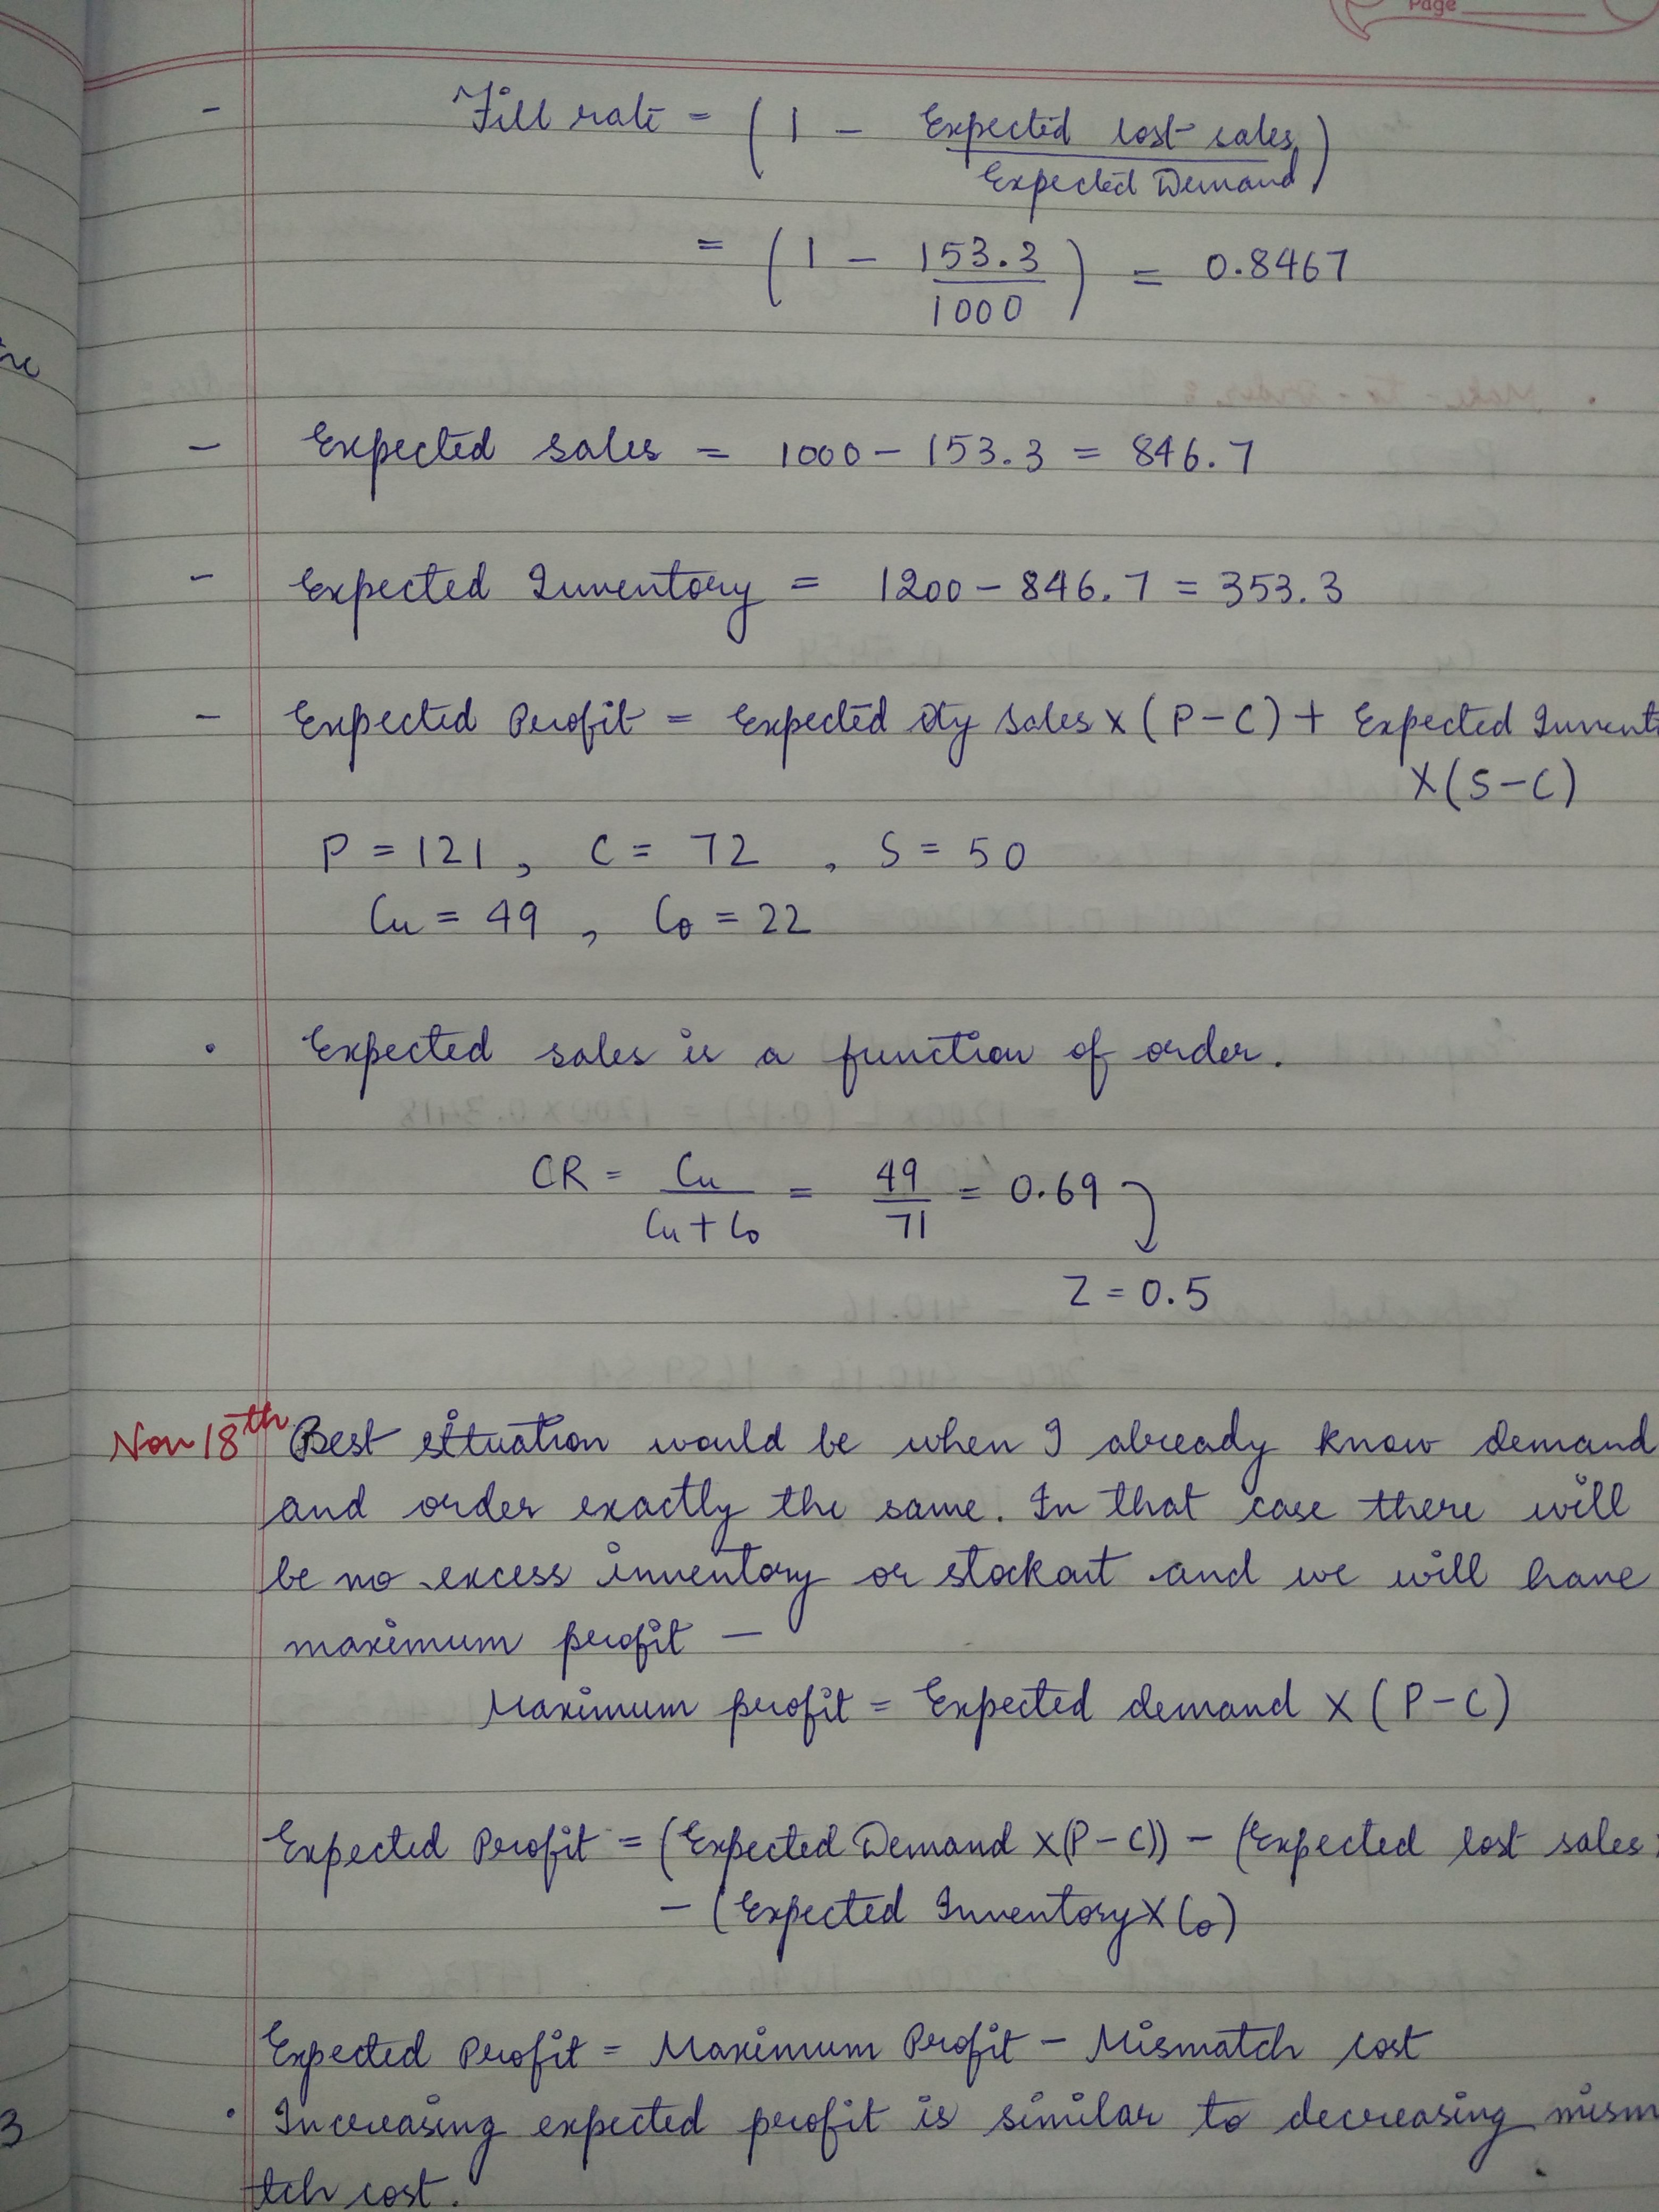 Page
- Fill rate = (1 - Expected lost sales / Expected Demand)
= (1 - 153.3 / 1000) = 0.8467
- Expected sales = 1000 - 153.3 = 846.7
- Expected Inventory = 1200 - 846.7 = 353.3
- Expected Profit = Expected qty sales x (P-C) + Expected Invent
x (S-C)
P = 121, C = 72, S = 50
Cu = 49, Co = 22
• Expected sales is a function of order.
CR = Cu / Cu+Co = 49 / 71 = 0.69
Z = 0.5
Nov 18th Best situation would be when I already know demand
and order exactly the same. In that case there will
be no excess inventory or stockout and we will have
maximum profit -
Maximum profit = Expected demand x (P-C)
Expected Profit = (Expected Demand x (P-C)) - (Expected lost sales
- (Expected Inventory x Co)
Expected Profit = Maximum Profit - Mismatch cost
• Increasing expected profit is similar to decreasing mism
3
tch cost.